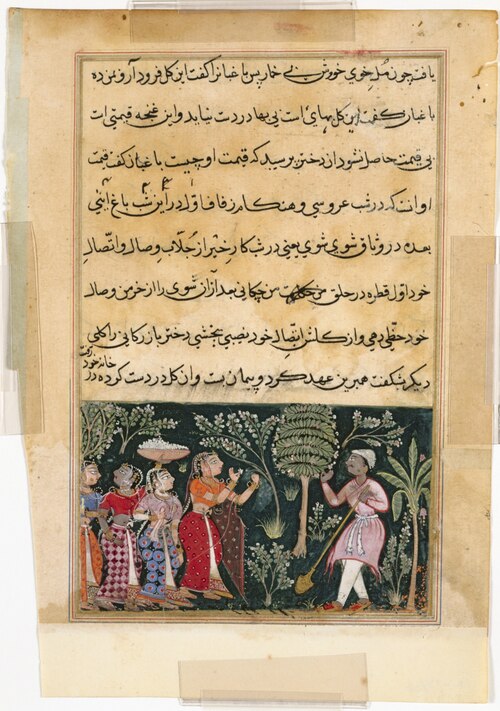 یافت چون مل خوی خودش بی خمار پس باغبانرا گفت این کل فرود آر و بزده
باغبان گفت این کل بهای است بی بها در دست نیاید و این غنچه قیمتی است
بی قیمت حاصل نشود از دختر پرسید که قیمت او چیست باغبان گفت قیمت
او انست که در شب عروسی و هنکام زفاف اول در این شب باغ آئی
بعده در وثاق شوی شوی یعنی در شبکار رخیر از جلاب وصال و اتصال
خود اول قطره در حلق من چکانی بعد ازان شوی را از خرمن وصال
خود حظی دهی و از کلشن اتصال خود نصیبی بخشی دختر بازرکانی را کلمی
دیکر شکفت همبرین عهد کرد و پیمان بست و ان کل در دست کرده در
خانه خود رفت